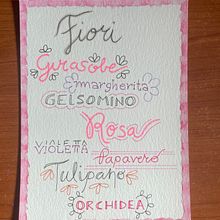 Fiori
Girasole
margherita
GELSOMINO
Rosa
VIOLETTA
VIOLETTA
Papavero
Tulipano
ORCHIDEA